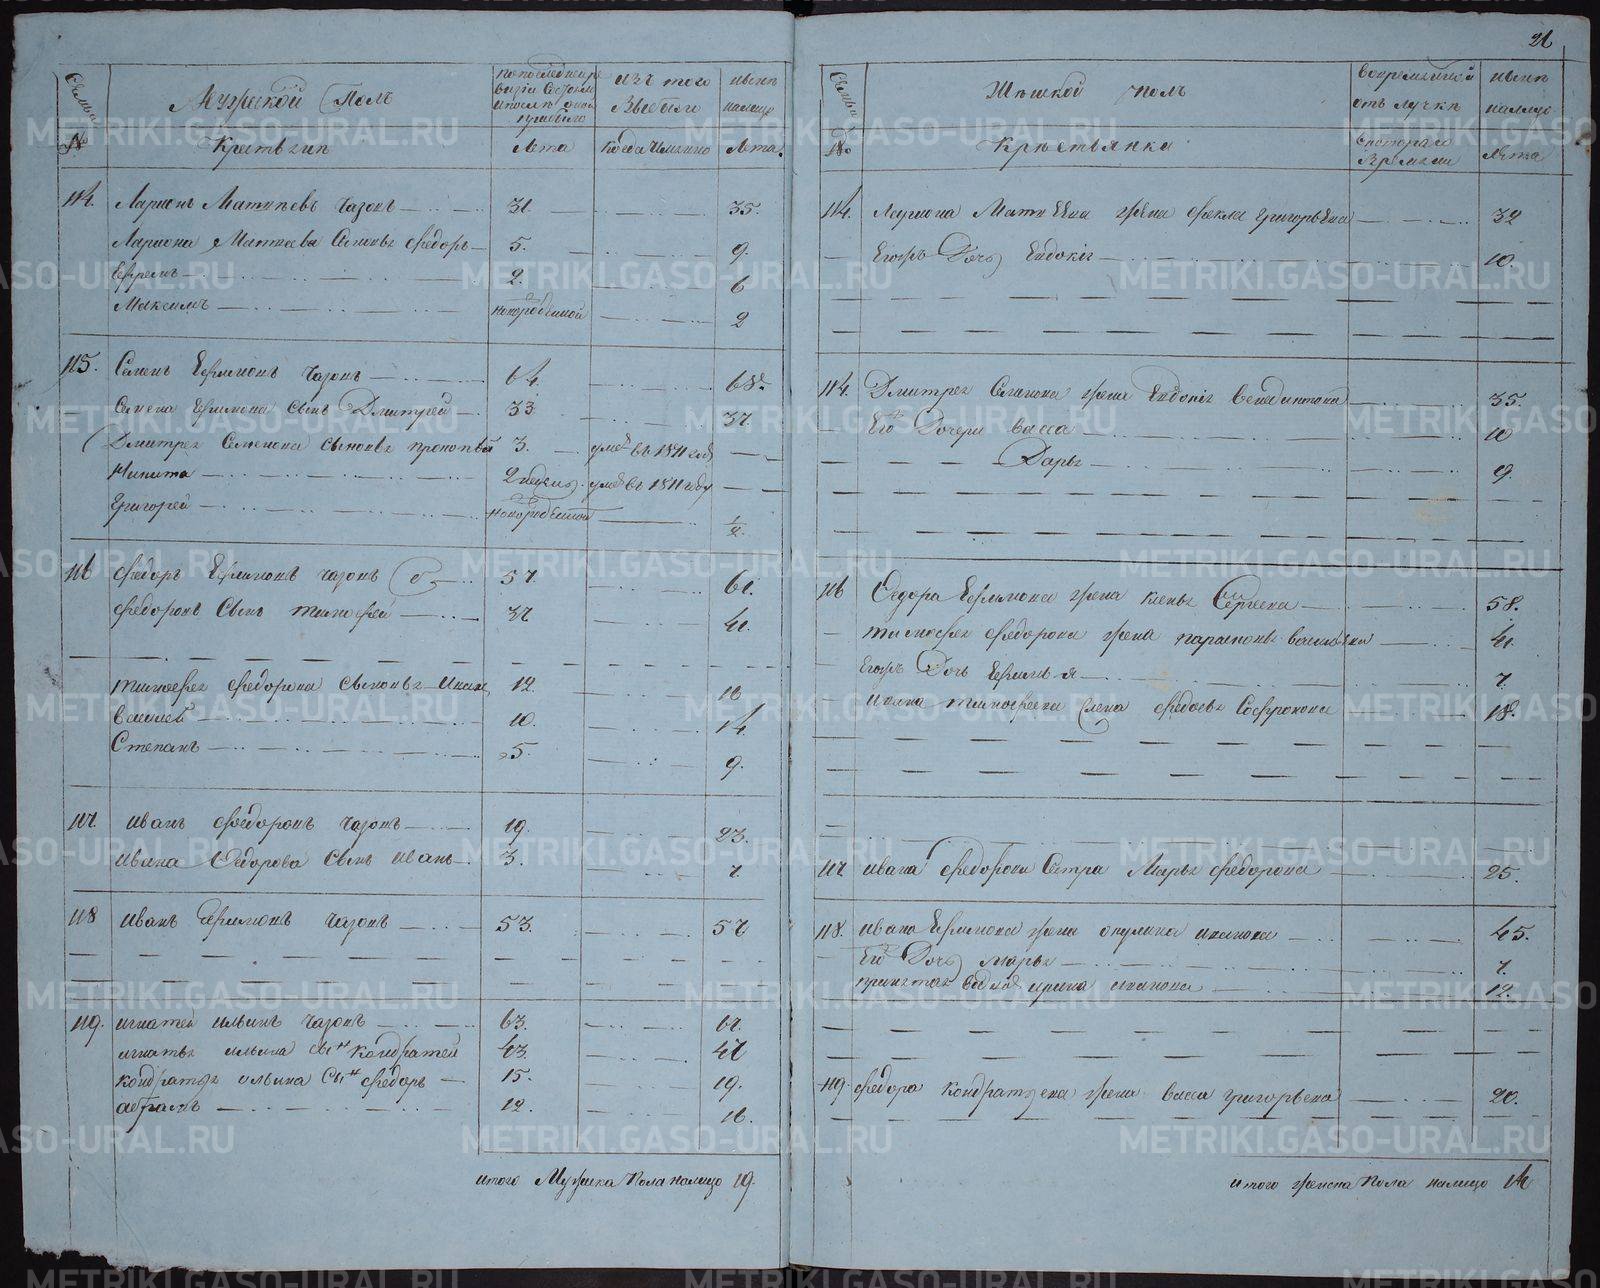 21
Семьи
Мужеской Полъ
по последней ре
визии Состояло
и после оной
прибыло
изъ того
Выбыло
ныне
налицо
№
Крестьяне
Лета
когда имянно
Лета.
114. Ларионъ Матвеевъ Чазовъ 31. 35.
Лариона Матвеева Сыновья Федоръ 5. 9.
Ефремъ 2. 6
Максимъ новорожденной 2
115. Семенъ Ефимовъ Чазовъ 64. 68.
Семена Ефимова сынъ Дмитрей 33 37.
Дмитрея Семенова сыновья прокопей 3. умре въ 1811 году
Никита 2 недели. умре въ 1811 году
Григорей новорожденной 1/2
116 Федоръ Ефимовъ Чазовъ 57. 61.
Федоровъ Сынъ тимофей 37 41.
тимофея федорова сыновья Иванъ 12. 16
василей 10. 14
Степанъ 5. 9.
117. иванъ федоровъ Чазовъ 19. 23.
ивана Федорова сынъ иванъ 3. 7.
118 иванъ Ефимовъ Чазовъ 53. 57.
119. игнатей ильинъ Чазовъ 63. 67.
игнатья ильина сынъ кондратей 43. 47
кондратья ильина сынъ федоръ 15. 19.
абрамъ 12. 16.
итого Мужска Пола налицо 19.
Семьи
Женской полъ
во временной
отлучке
ныне
налицо
№
Крестьянки
с которого
времени
Лета
114. Лариона Матвеева жена фекла григорьева 32
Егожъ Дочь Евдокия 10.
114. Дмитрея Семенова жена Евдокия венидиктова 35.
Его Дочери васса 10
Дарья 9.
116 Федора Ефимова жена Сергеева 58.
тимофея федорова жена парасковья васильева 41.
Егожъ Дочь Ефимья 7.
ивана тимофеева жена федосья Софронова 18.
117 ивана федорова Сестра Марья федорова 25.
118. ивана Ефимова жена окулина иванова 45.
Его Дочь Марья 7.
ирина иванова 12.
119. федора кондратьева жена васса григорьева 20.
итого женска Пола налицо 14
METRIKI.GASO-URAL.RU